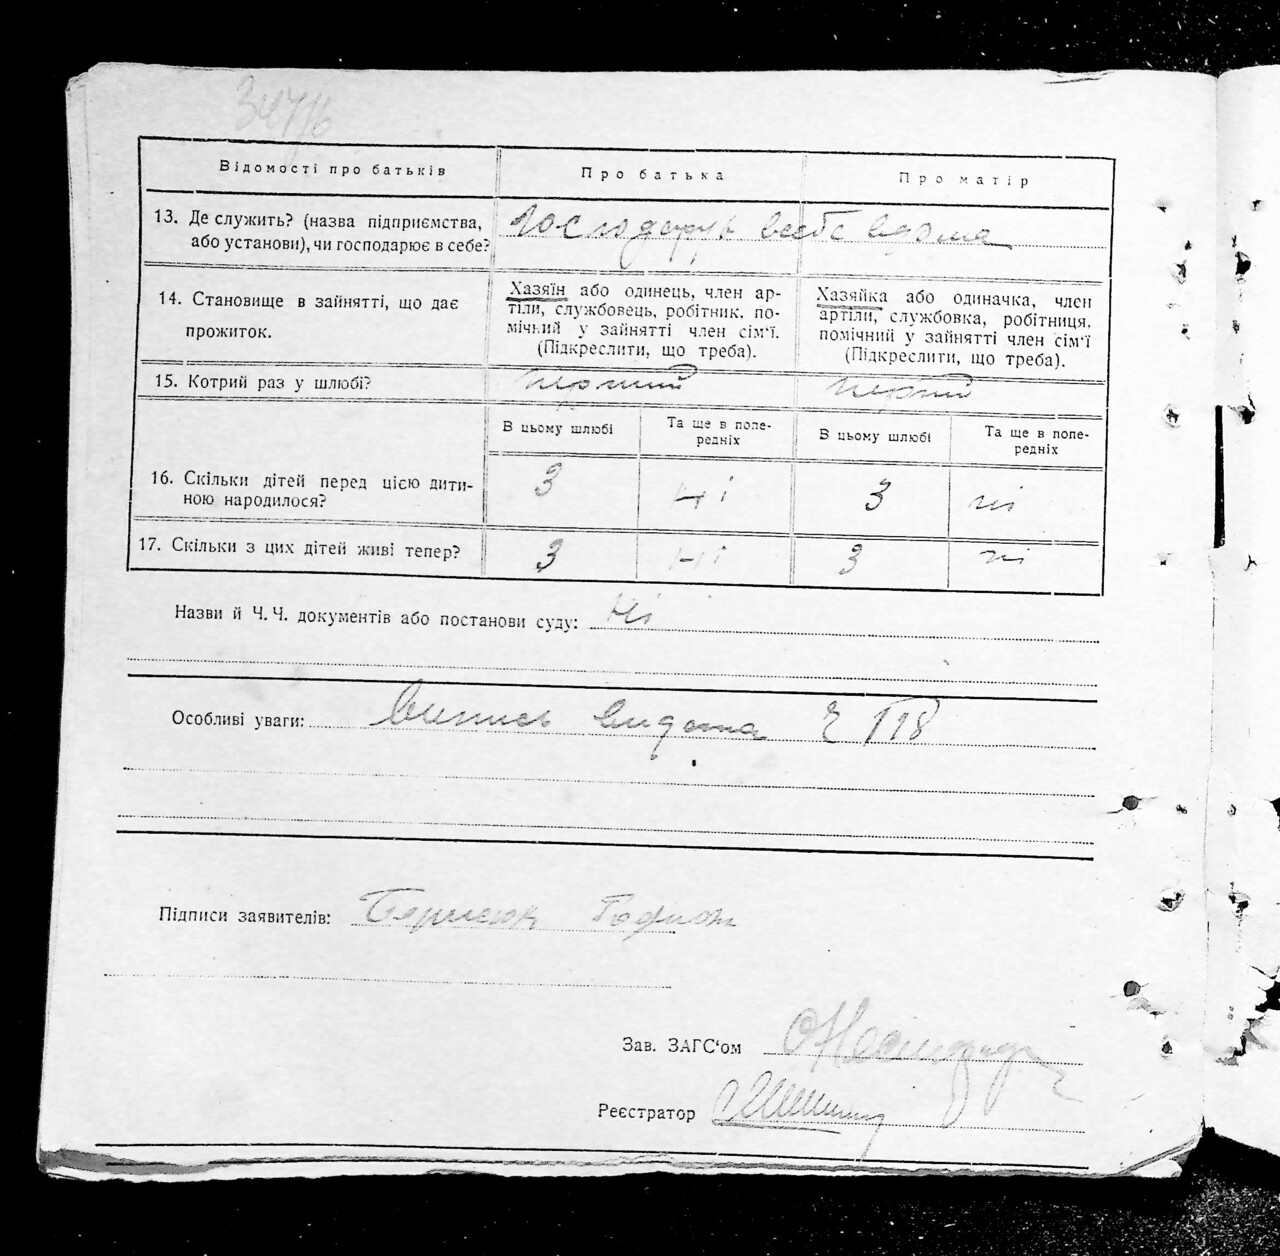 Відомості про батьків
Про батька
Про матір
13. Де служить? (назва підприємства,
або установи), чи господарює в себе?
Господарує в себе вдома
14. Становище в зайнятті, що дає
прожиток.
Хазяїн або одинець, член ар-
тіли, службовець, робітник. по-
мічний у зайнятті член сім'ї.
(Підкреслити, що треба).
Хазяйка або одиначка, член
артіли, службовка, робітниця.
помічний у зайнятті член сім'ї
(Підкреслити, що треба).
15. Котрий раз у шлюбі?
перший
перший
В цьому шлюбі
Та ще в попе-
редніх
В цьому шлюбі
Та ще в попе-
редніх
16. Скільки дітей перед цією дити-
ною народилося?
3
ні
3
ні
17. Скільки з цих дітей живі тепер?
3
ні
3
ні
Назви й Ч.Ч. документів або постанови суду: Ні
Особливі уваги: Випись видана Ч 118
Підписи заявителів:
Зав. ЗАГС'ом
Реєстратор